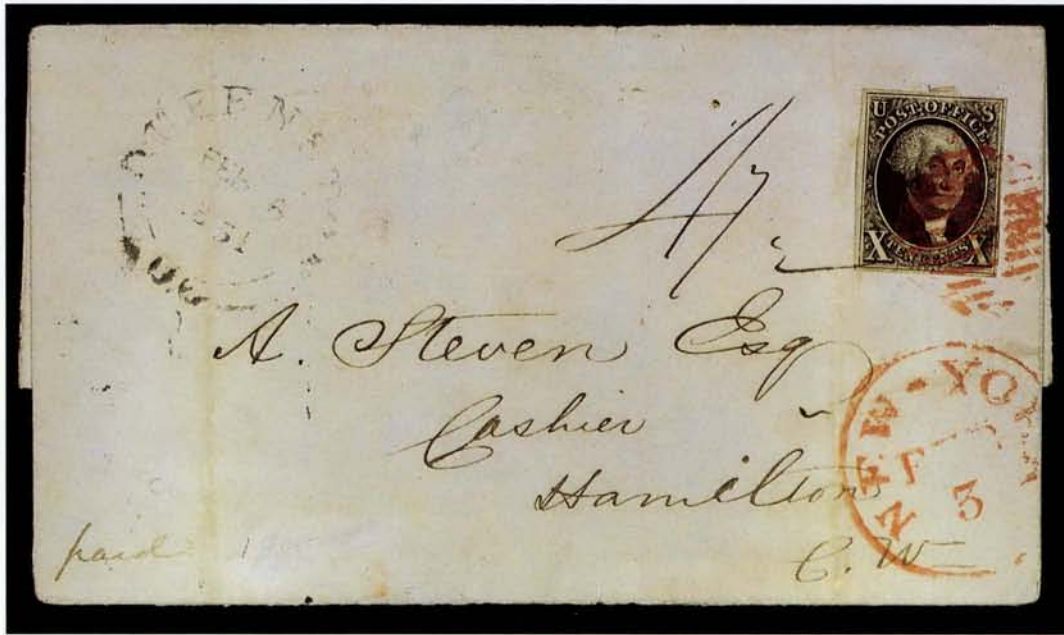 QUEENS
FEB
8
1851
U.C
4½
U S
POST OFFICE
X TEN CENTS X
A. Steven Esq
Cashier
Hamilton
C. W
paid
NEW-YORK
3